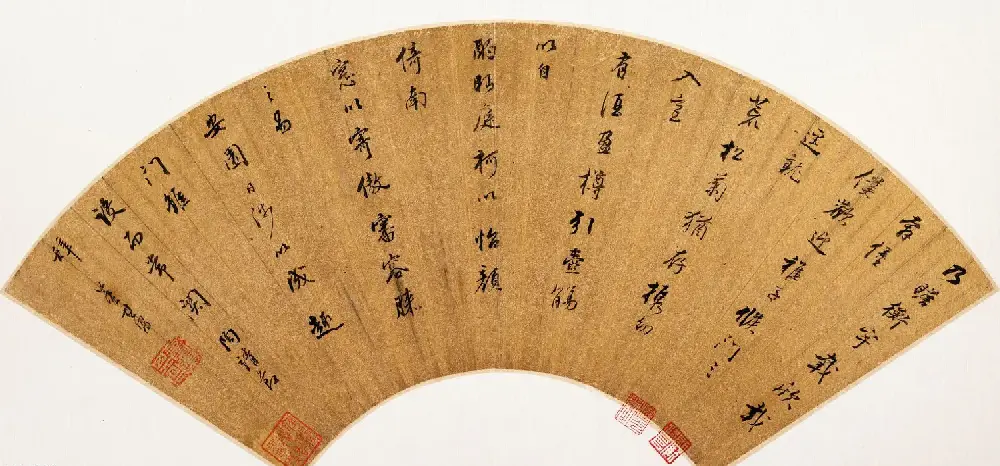 乃瞻衡宇載欣載
奔僮
僕歡迎稚子候門三
逕就
荒松菊猶存攜幼
入室
有酒盈樽引壺觴
以自
酌眄庭柯以怡顏
倚南
窓以寄傲審容膝
之易
安園日涉以成趣
門雖
設而常關陶靖節
辭
董其昌